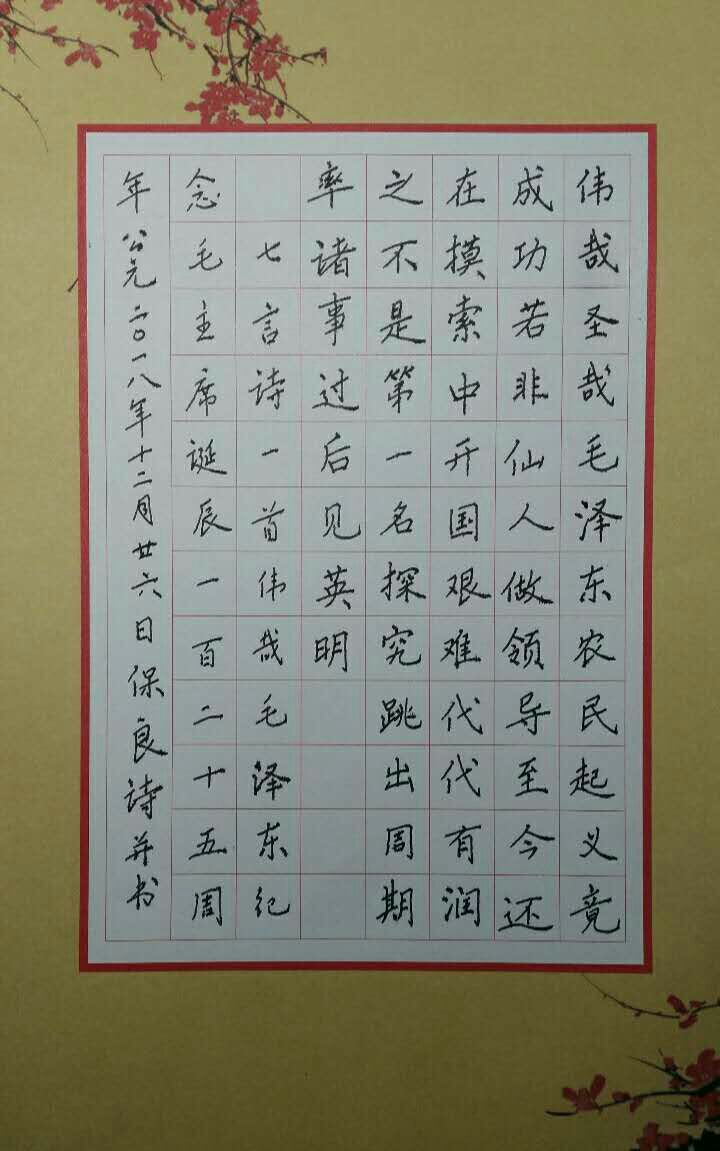 伟哉圣哉毛泽东农民起义竟
成功若非仙人做领导至今还
在摸索中开国艰难代代有润
之不是第一名探究跳出周期
率诸事过后见英明
七言诗一首伟哉毛泽东纪
念毛主席诞辰一百二十五周
年公元二〇一八年十二月廿六日保良诗并书